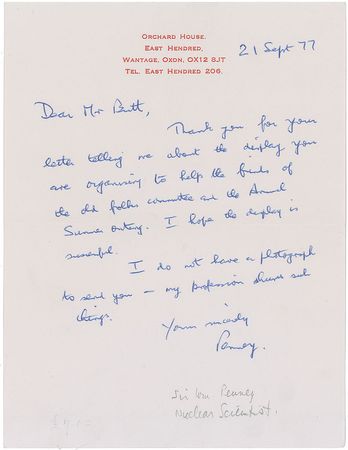 ORCHARD HOUSE.
EAST HENDRED,
WANTAGE, OXON, OX12 8JT
TEL. EAST HENDRED 206.
21 Sept 77
Dear Mr Britt,
Thank you for your
letter telling me about the display you
are organising to help the funds of
the old folks committee and the Annual
Summer outing. I hope the display is
successful.
I do not have a photograph
to send you – my profession shuns such
things.
Yours sincerely
Penney.
Sir Wm. Penney
Nuclear Scientist.